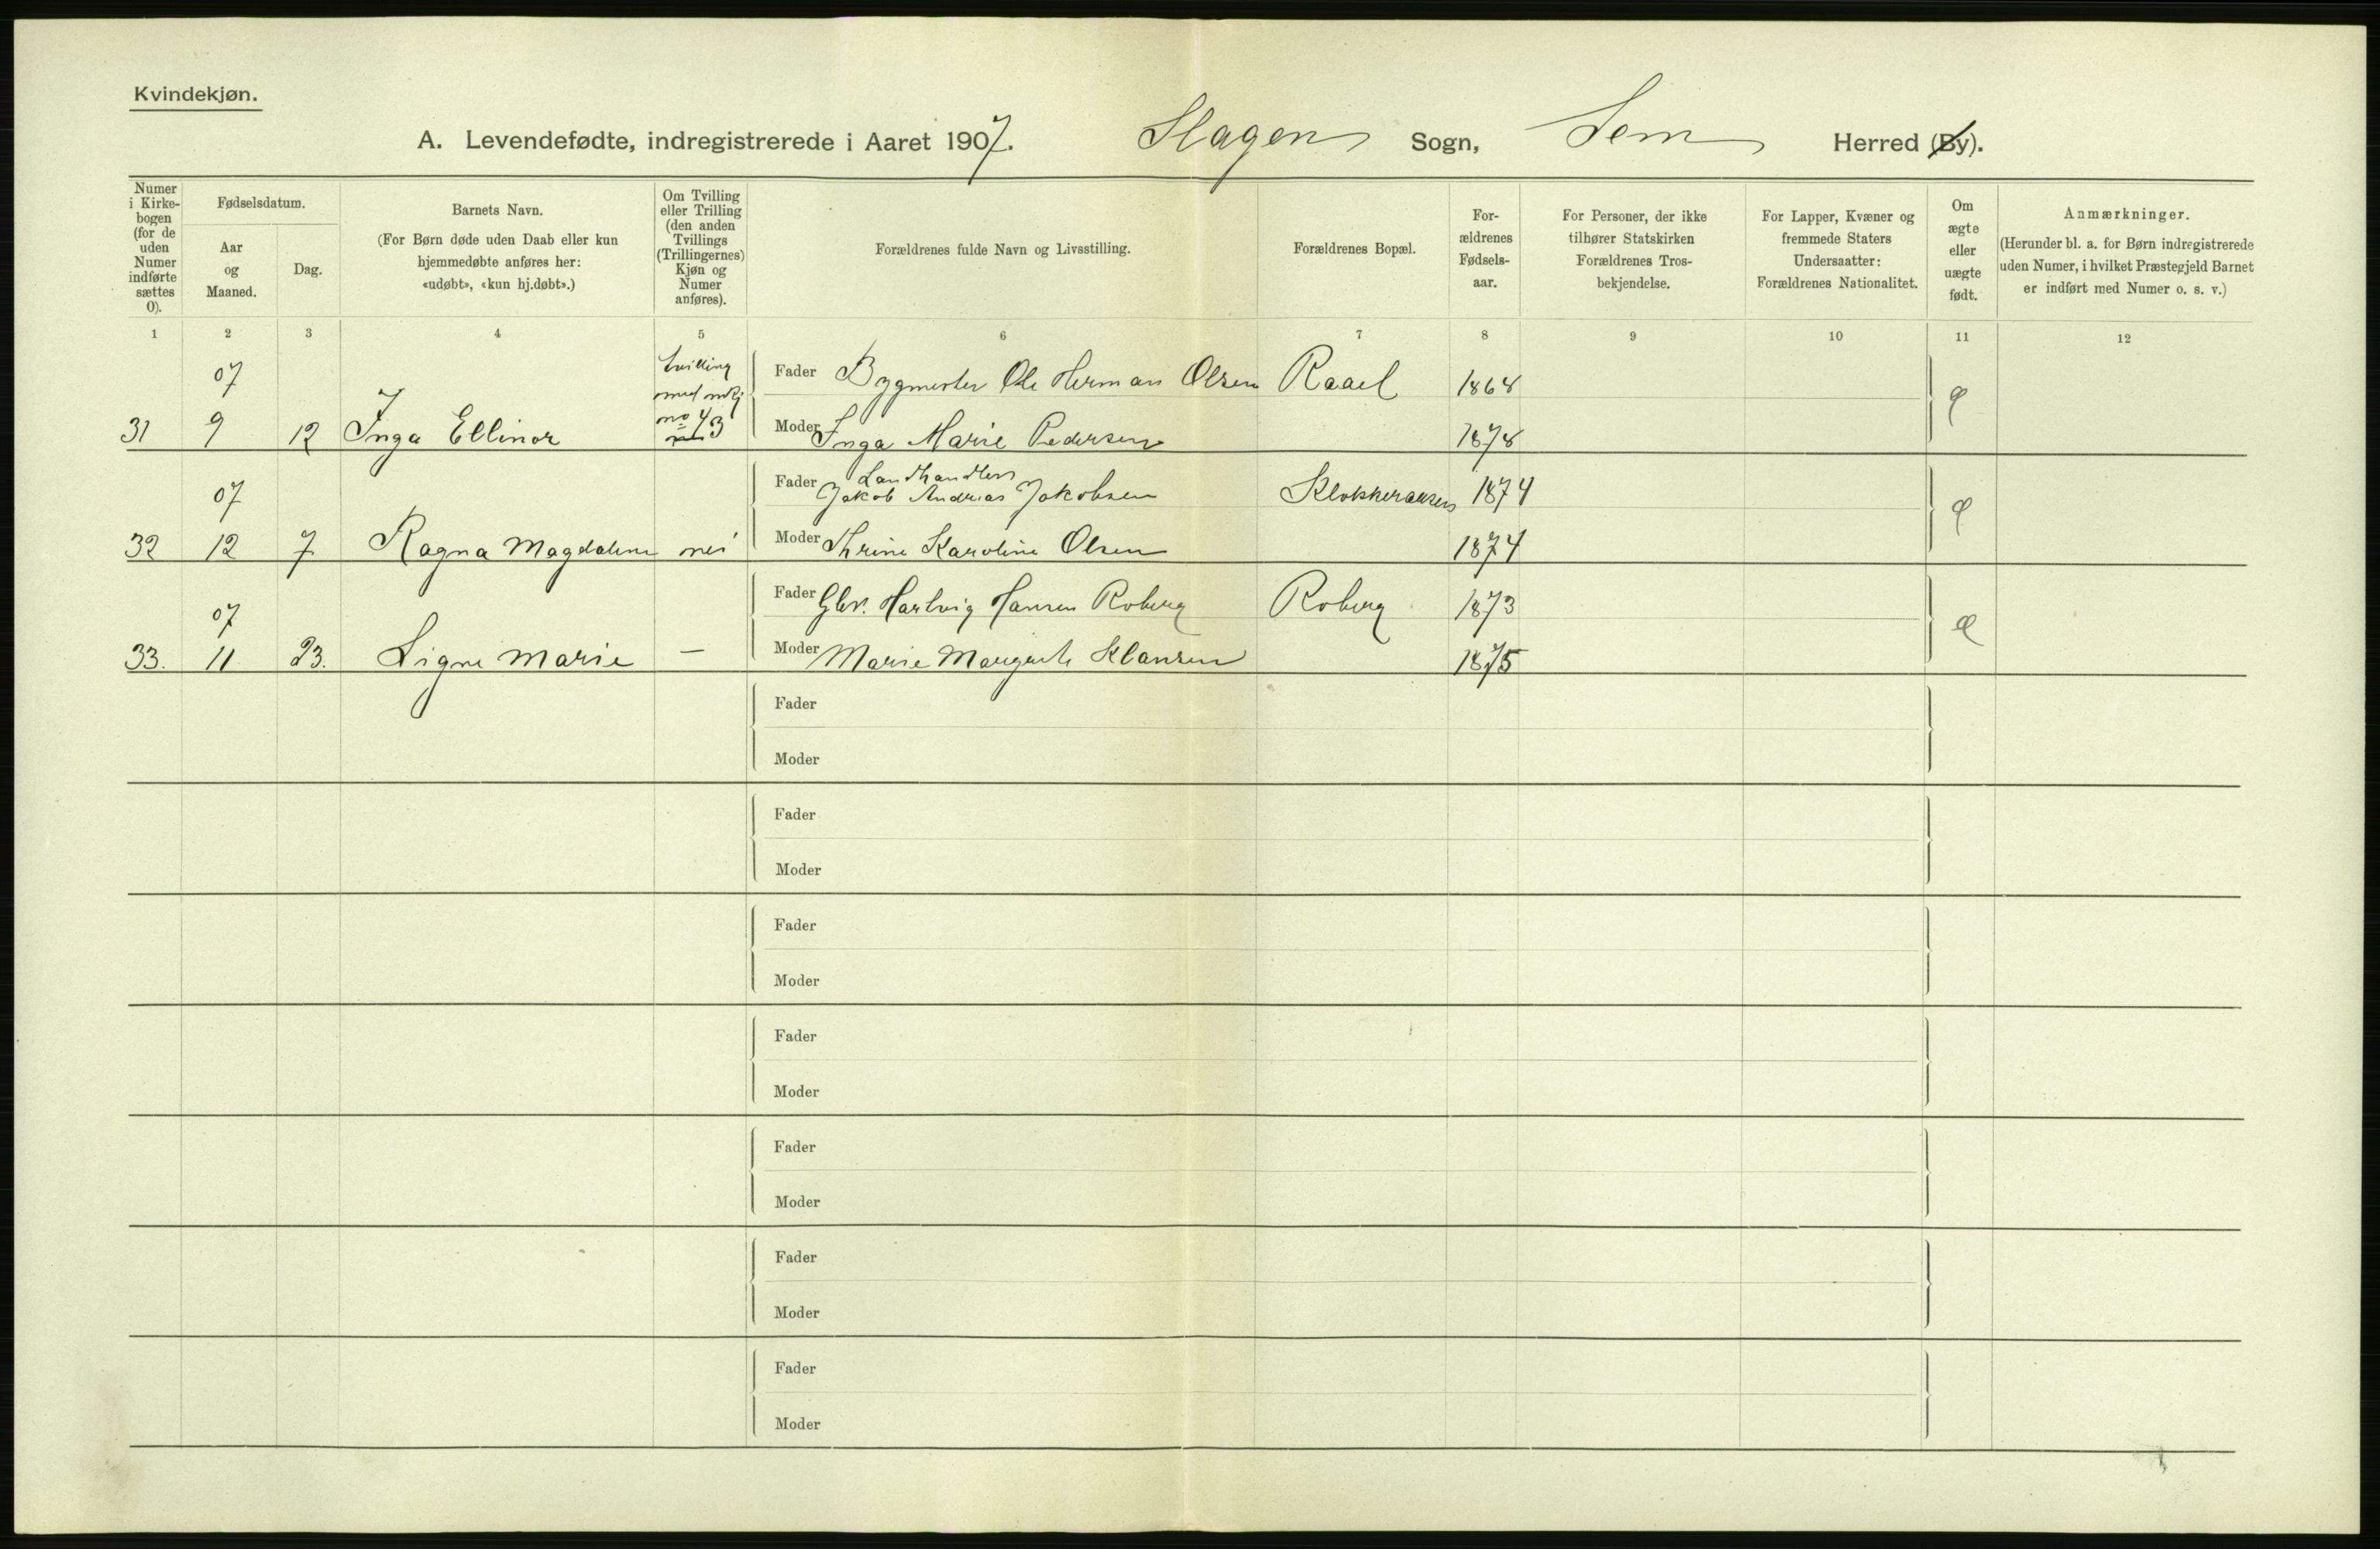 Kvindekjøn.
A. Levendefødte, indregistrerede i Aaret 1907. Slagen Sogn, Sem Herred (By).
Numer i Kirkebogen (for de uden Numer indførte sættes 0).
Fødselsdatum.
Aar og Maaned.
Dag.
Barnets Navn.
(For Børn døde uden Daab eller kun hjemmedøbte anføres her: «udøbt», «kun hj.døbt».)
Om Tvilling eller Trilling (den anden Tvillings (Trillingernes) Kjøn og Numer anføres).
Forældrenes fulde Navn og Livsstilling.
Forældrenes Bopæl.
Forældrenes Fødselsaar.
For Personer, der ikke tilhører Statskirken Forældrenes Trosbekjendelse.
For Lapper, Kvæner og fremmede Staters Undersaatter: Forældrenes Nationalitet.
Om ægte eller uægte født.
Anmærkninger.
(Herunder bl. a. for Børn indregistrerede uden Numer, i hvilket Præstegjeld Barnet er indført med Numer o. s. v.)
1 2 3 4 5 6 7 8 9 10 11 12
07 tvilling med mdkj no 43
Fader Bygmester Ole Herman Olsen Raael 1868
31 9 12 Inga Ellinor Moder Inga Marie Pedersen 1878
07 Fader Landhandler Jakob Andreas Jakobsen Klokkeraasen 1874
32 12 7 Ragna Magdalene nei Moder Thrine Karoline Olsen 1874
07 Fader Gbr. Hartvig Hansen Roberg Roberg 1873
33. 11 23. Signe Marie — Moder Marie Margrete Klausen 1875
Fader
Moder
Fader
Moder
Fader
Moder
Fader
Moder
Fader
Moder
Fader
Moder
Fader
Moder